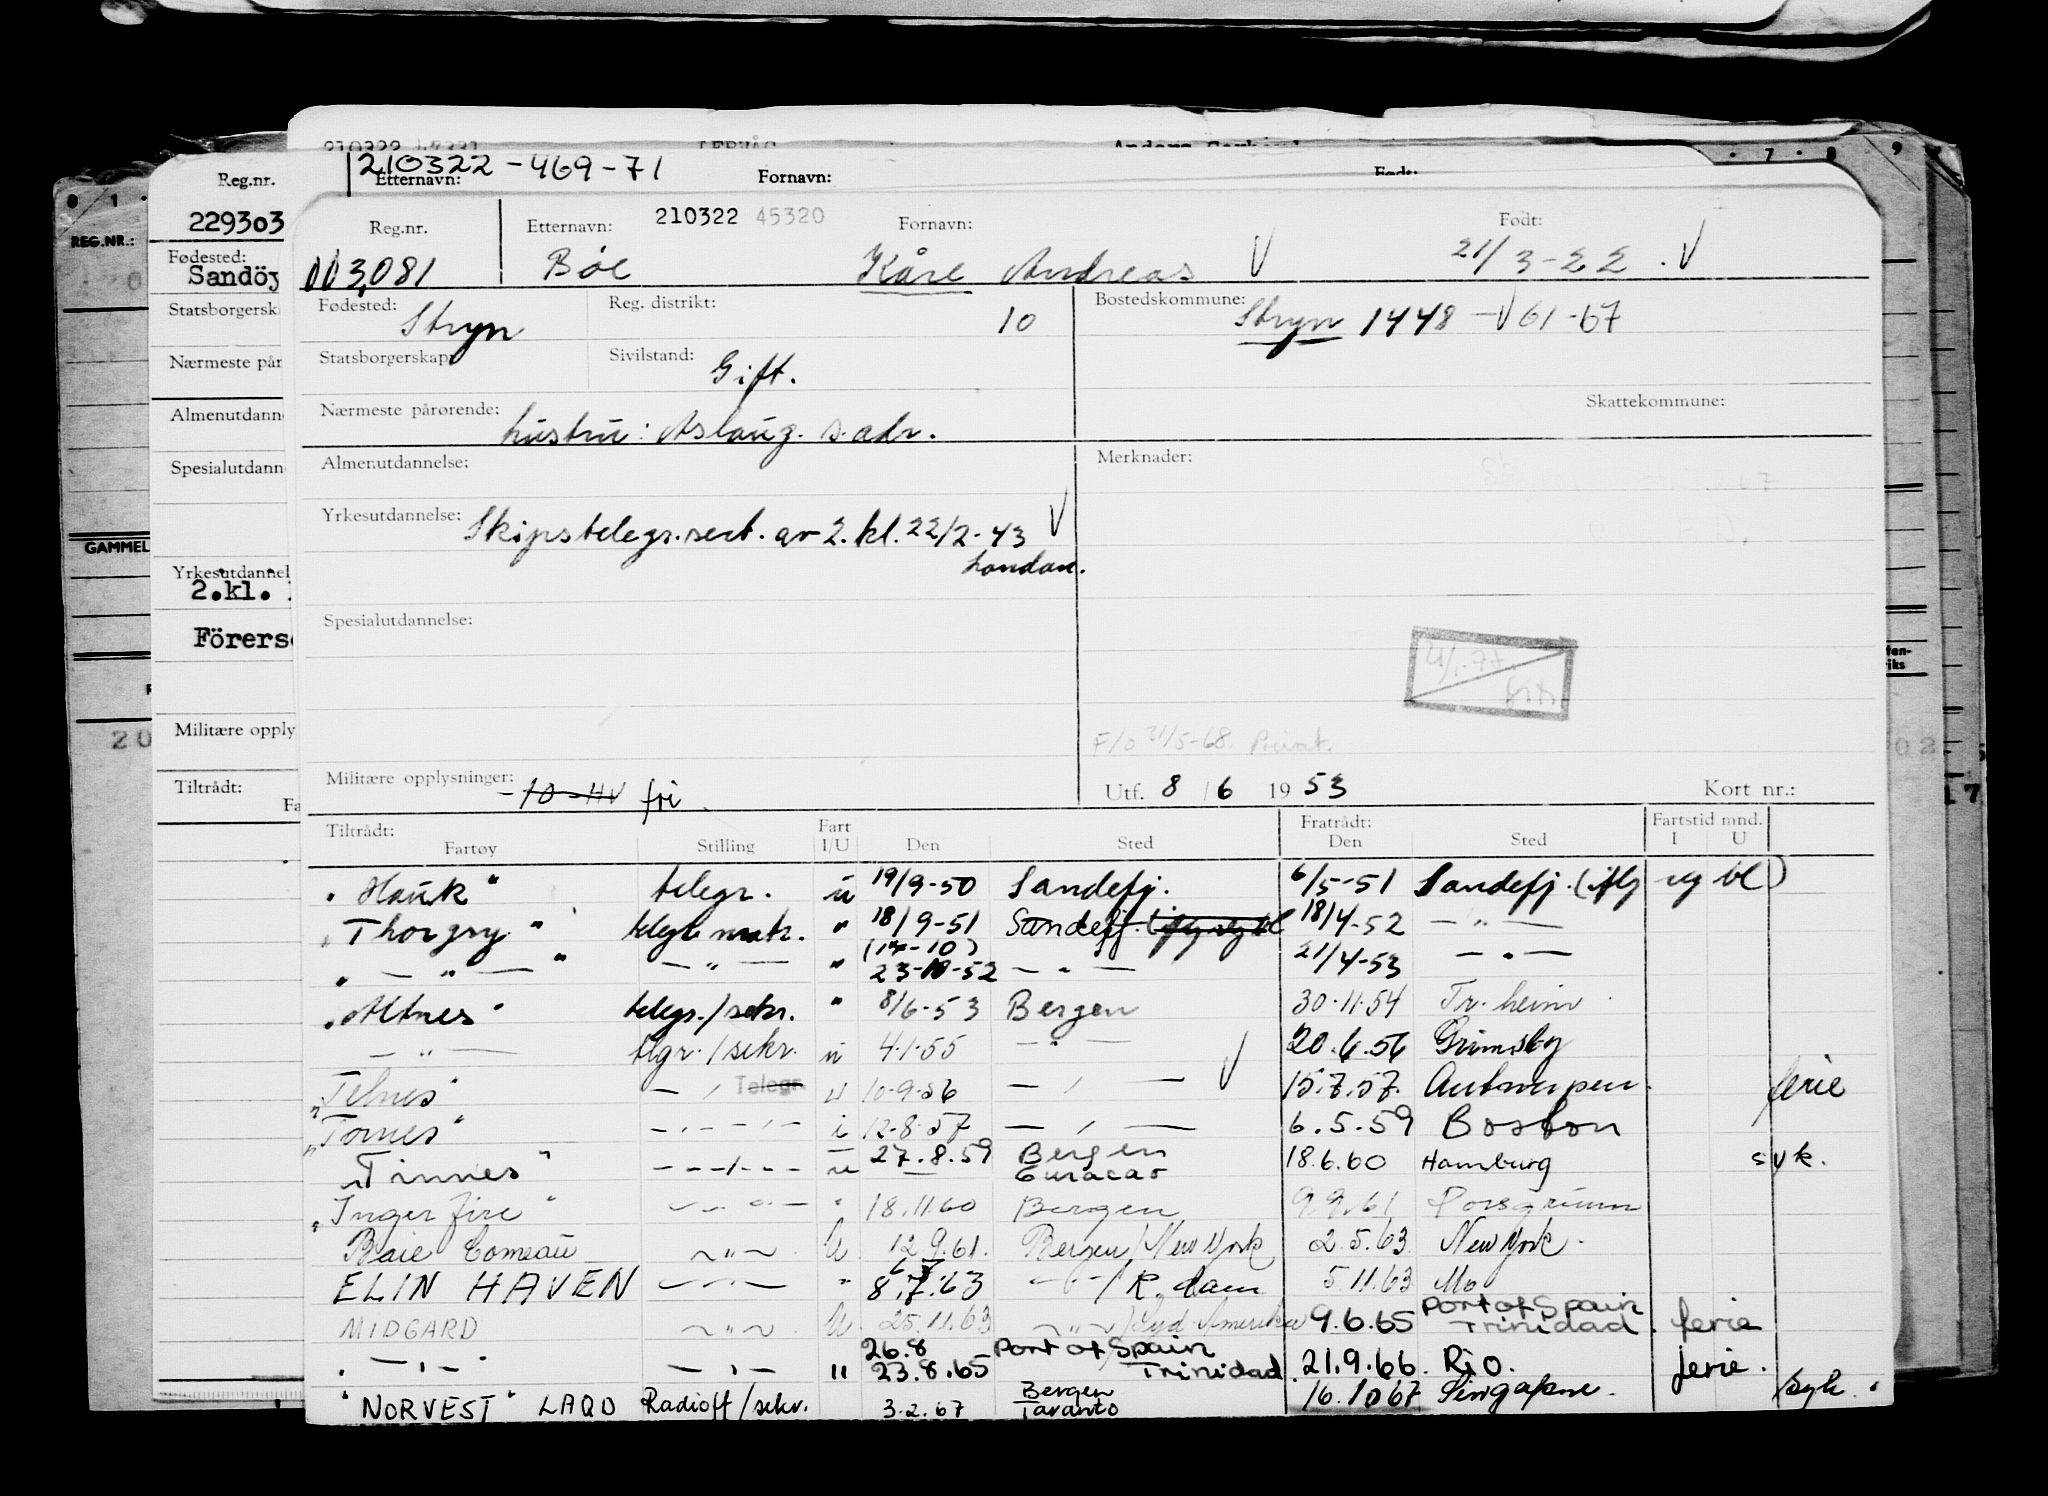 210322 LERVÅG
Reg.nr. 210322-469-71
Etternavn: Fornavn: Født:
REG.NR.:
229303
Fødested:
Sandöy
Statsborgersk
Nærmeste pår
Almenutdann
Spesialutdann
GAMMEL
Yrkesutdannel
2.kl.
Förers
Militære opply
Tiltrådt:
Reg.nr. Etternavn: 210322 45320 Fornavn: Født:
3081 Böe Kåre Andreas V 21/3-22. V
Fødested: Stryn Reg. distrikt: 10 Bostedskommune: Stryn 1448 - V 61-67
Statsborgerskap: Sivilstand: Gift.
Nærmeste pårørende: hustru: Aslaug. s. adr. Skattekommune:
Almenutdannelse: Merknader:
Yrkesutdannelse: Skipstelegr.sert. av 2. kl. 22/2-43 V
London.
Spesialutdannelse:
21/1-77.
F/o 31/5-68. Privat.
Militære opplysninger: - 10-HV fri Utf. 8/6 1953 Kort nr.:
Tiltrådt: Fartøy Stilling Fart I/U Den Sted Fratrådt: Den Sted Fartstid mnd. I U
"Hauk" telegr. u 19/9-50 Sandefj. 6/5-51 Sandefj. (
"Thorgry" telegr. 18/9-51 Sandefj. 18/4-52 — " —
" — " — " — " — " (17-10) 23-10-52 — " — 21/4-53 — " —
"Altnes" telegr./sekr. " 8/6-53 Bergen 30-11-54 Tr.heim
— " — tlgr./sekr. u 4.1.55 — " — V 20.6.56 Grimsby
"Telnes" — , Telegr. u 10-9-56 — , — 15.7.57. Antwerpen. ferie
"Tornes" — , — , — i 12-8-57 — , — 6.5.59 Boston
"Tinnes" — — , — — u 27.8.59 Bergen Curacao 18.6.60 Hamburg syk.
"Inger fire" — " — " 18.11.60 Bergen 9.9.61 Porsgrunn
Baie Comeau — " — U 12.9.61. Bergen/New York 2.5.63 New York.
ELIN HAVEN — " — " 8.7.63 — " —/R.dam 5.11.63 Mo
MIDGARD — " — U 25.11.63 — " —/Syd-Amerika 9.6.65 Port of Spain Trinidad. ferie
" — , — " — , — " 26.8 23.8.65 Port of Spain Trinidad 21.9.66 Rio. ferie.
"NORVEST" LAQD Radioff/sekr. 3.2.67 Bergen Taranto 16.10 67 Singapore. /syk.